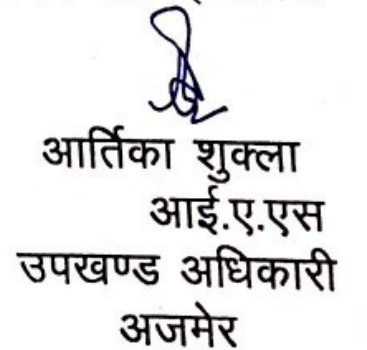 आर्तिका शुक्ला
आई.ए.एस
उपखण्ड अधिकारी
अजमेर